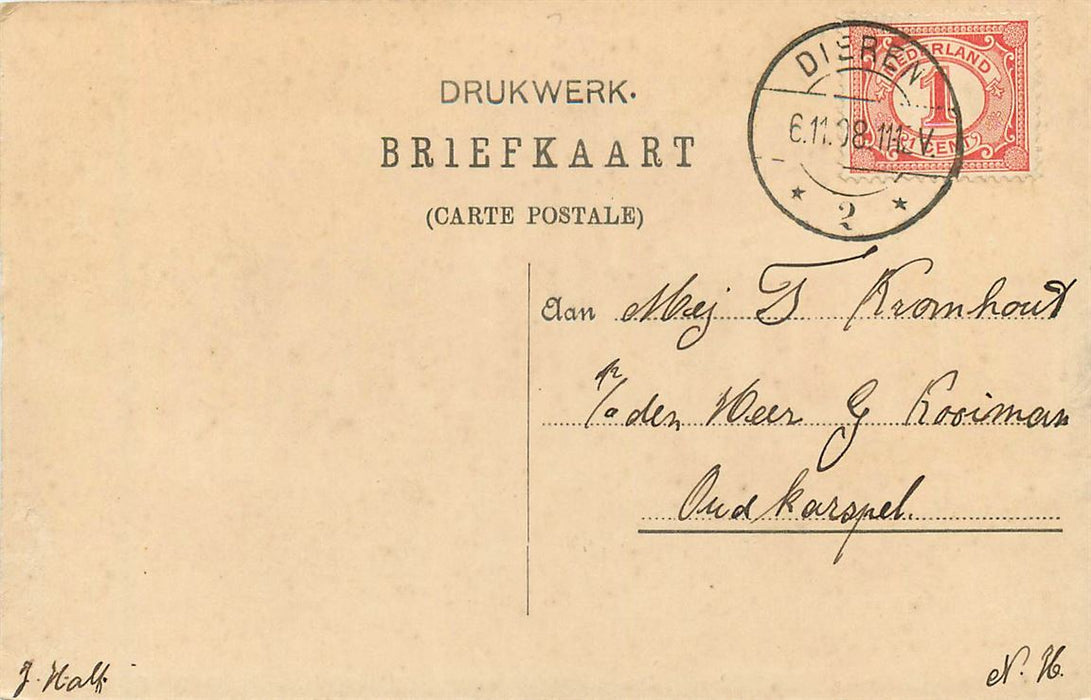 DRUKWERK.
BRIEFKAART
(CARTE POSTALE)
DIEREN
6.11.08.11-12V.
2
NEDERLAND
1
1 CENT
Aan Mej T Kromhout
p/a den Heer G Kooiman
Oudkarspel.
N. H.
J.